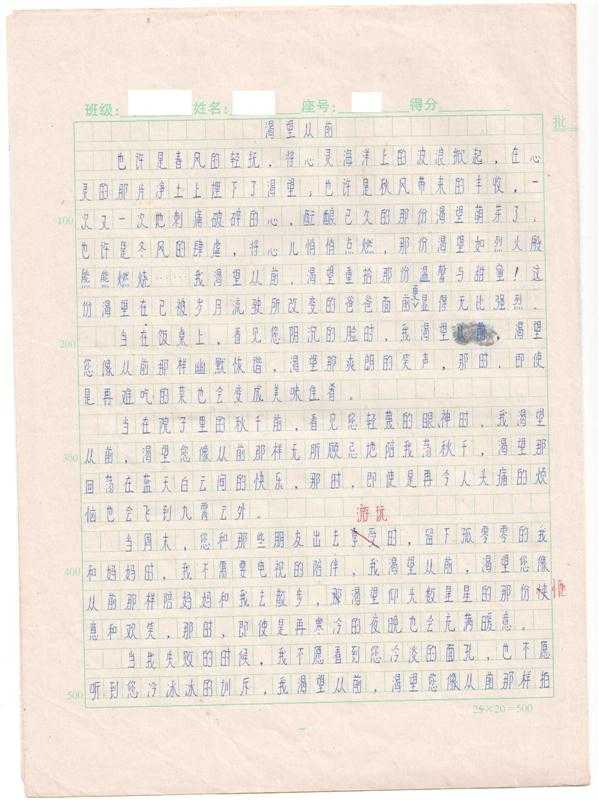 班级: 姓名: 座号: 得分
批
渴望从前
也许是春风的轻抚，将心灵海洋上的波浪掀起，在心
灵的那片净土上埋下了渴望，也许是秋风带来的丰收，一
次又一次地刺痛破碎的心，酝酿已久的那份渴望萌芽了，
100
也许是冬风的肆虐，将心儿悄悄点燃，那份渴望如烈火般
熊熊燃烧……我渴望从前，渴望重拾那份温馨与甜蜜！这
份渴望在已被岁月流驶所改变的爸爸面前更显得无比强烈。
当在饭桌上，看见您阴沉的脸时，我渴望从前，渴望
200
您像从前那样幽默恢谐，渴望那爽朗的笑声，那时，即使
是再难吃的菜也会变成美味佳肴。
当在院子里的秋千前，看见您轻蔑的眼神时，我渴望
从前，渴望您像从前那样无所顾忌地陪我荡秋千，渴望那
300
回荡在蓝天白云间的快乐，那时，即使是再令人头痛的烦
恼也会飞到九霄云外。
游玩
当周末，您和那些朋友出去时，留下孤零零的我
和妈妈时，我不需要电视的陪伴，我渴望从前，渴望您像
400
从前那样陪妈妈和我去散步，渴望仰头数星星的那份快
惬
意和欢笑，那时，即使是再寒冷的夜晚也会充满暖意。
当我失败的时候，我不愿看到您冷淡的面孔，也不愿
听到您冷冰冰的训斥，我渴望从前，渴望您像从前那样拍
500
25×20=500